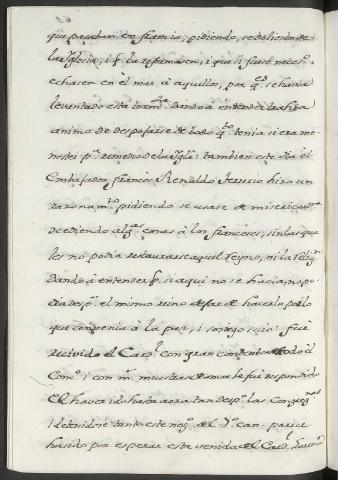 que pasaban en francia, pidiendo, se doliesen de
la Iglesia, i q̃ la reformasen, i que si fuese neces.º
echasen en el mar à aquellos, por q.en se havia
levantado esta torm.ta dando à entender trahia
animo de despojarse de todo q.to tenia si era me-
nester p.a remedio de la Igl.a: tambien este dia el
Embajador frances Renaldo Ferrerio hizo un
razonam.to pidiendo se usase de misericordia
cediendo alg.as cosas à los franceses, sin las qua
les no podia restaurarse aquel Reyno, ni la Relig.n
dando à entender q̃ si aqui no se hacia, no po
dia desp.s el mismo
que convenia à la paz, i sosiego suio: fue
recivido el Card.l con gran contento de todo el
Conc.º i con m.s muestras de amor le fue respondido
El haver ido hasta aora tan desp.º las Congreg.nes
i detenidose tanto este neg.º del S.to can. parece
ha sido por esperar esta venida del Card.l